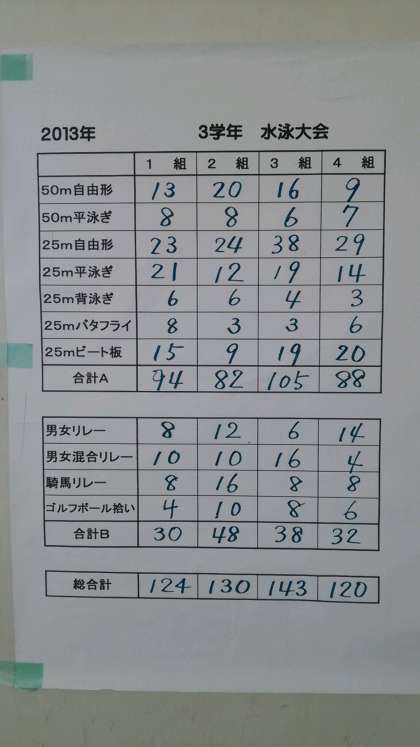 2013年 3学年 水泳大会
1 組 2 組 3 組 4 組
50m自由形 13 20 16 9
50m平泳ぎ 8 8 6 7
25m自由形 23 24 38 29
25m平泳ぎ 21 12 19 14
25m背泳ぎ 6 6 4 3
25mバタフライ 8 3 3 6
25mビート板 15 9 19 20
合計A 94 82 105 88
男女リレー 8 12 6 14
男女混合リレー 10 10 16 4
騎馬リレー 8 16 8 8
ゴルフボール拾い 4 10 8 6
合計B 30 48 38 32
総合計 124 130 143 120